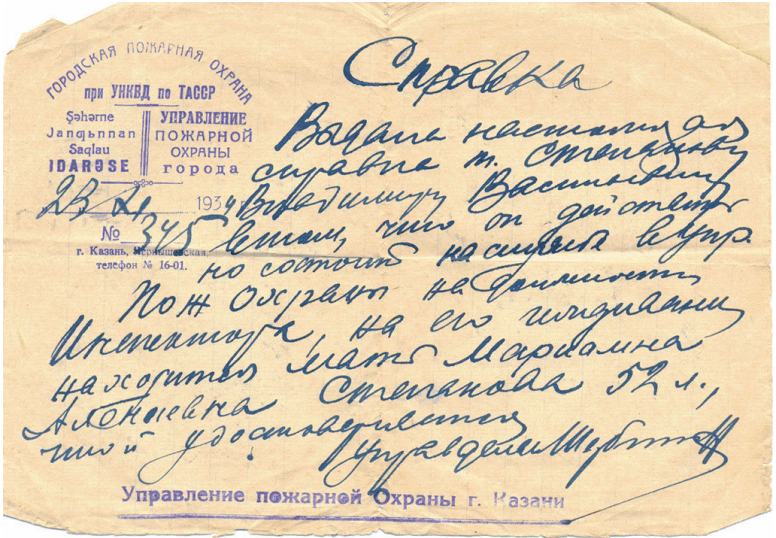 ГОРОДСКАЯ ПОЖАРНАЯ ОХРАНА
при УНКВД по ТАССР
Şəhərne
Janƣьnnan
Saqlau
IDARƏSE
УПРАВЛЕНИЕ
ПОЖАРНОЙ
ОХРАНЫ
города
23 XI 1934
№ 345
г. Казань, Чернышевская,
телефон № 16-01.
Справка
Выдана настоящая
справка т. Степанову
Владимиру Васильевичу
в том, что он действит
но состоит на службе в Упр.
Пож Охраны на должности
Инспектора, на его иждивении
находится мать Марианна
Алексеевна Степанова 52 л.,
что и удостоверяется
Управделами
Управление пожарной Охраны г. Казани